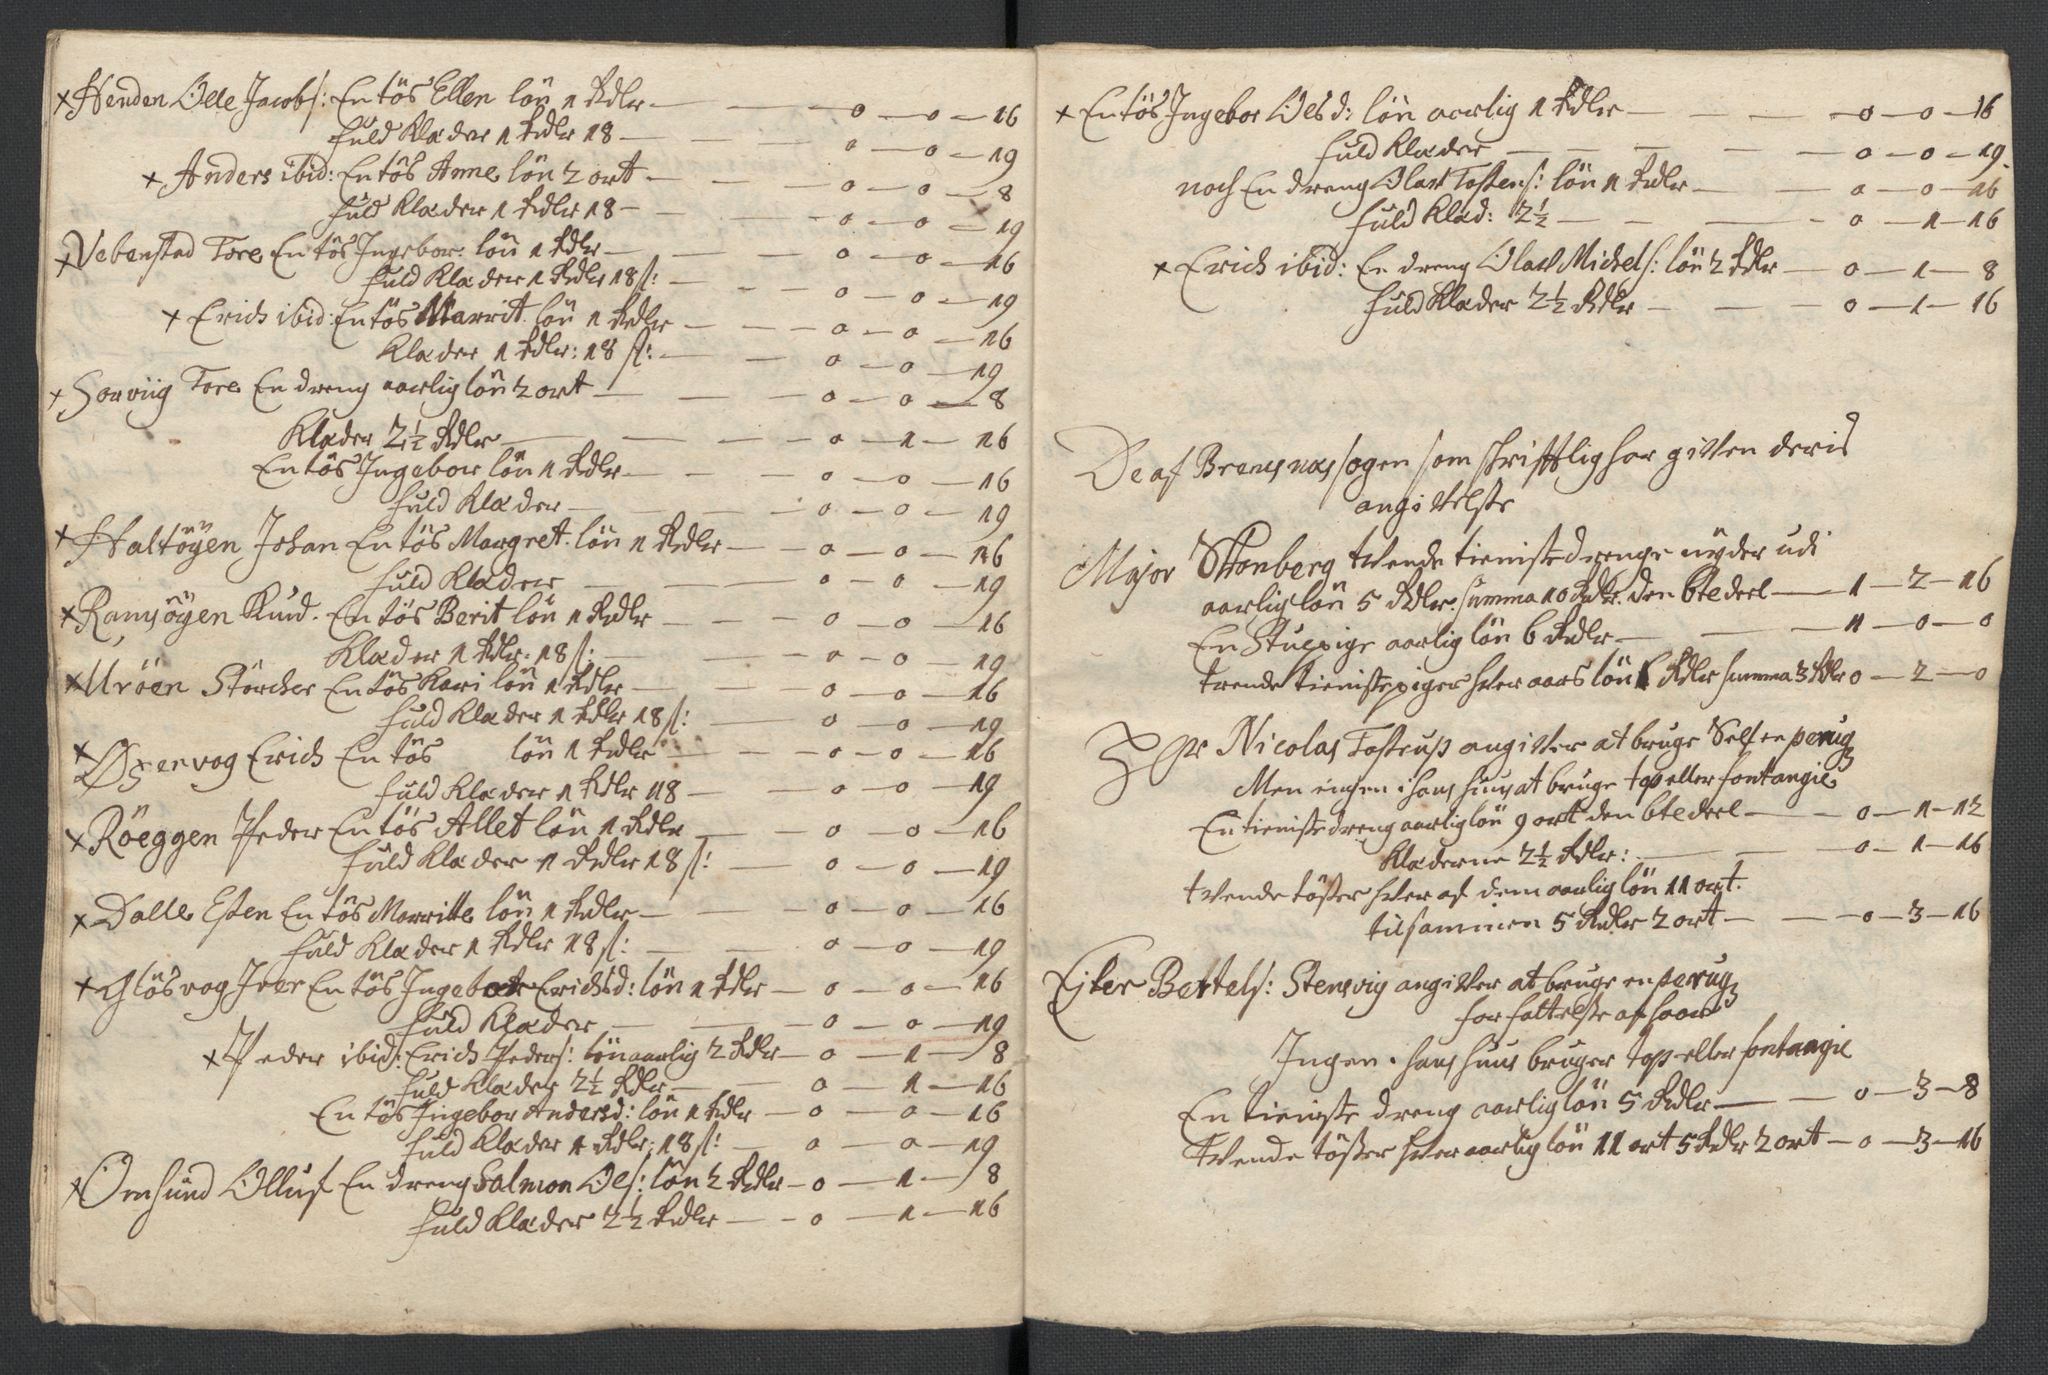 × Henden Olle Jacobs: En tös Ellen lön 1 Rdlr — — — 0 — 0 — 16
fuld Klæder 1 Rdlr 18 — — — 0 — 0 — 19
× Anders ibid: En tös Anne lön 2 ort — — 0 — 0 — 8
fuld Klæder 1 Rdlr 18 — — 0 — 0 — 19
× Vebenstad Tore En tös Ingebor: lön 1 Rdlr — — 0 — 0 — 16
fuld Klæder 1 Rdlr 18 s: — — 0 — 0 — 19
× Erich ibid: En tös Marrit lön 1 Rdlr — — 0 — 0 — 16
Klæder 1 Rdlr: 18 s: — — 0 — 0 — 19
× Sorviig Tore En dreng aarlig lön 2 ort — — 0 — 0 — 8
Klæder 2½ Rdlr — — — 0 — 1 — 16
En tös Ingebor lön 1 Rdlr — — 0 — 0 — 16
fuld Klæder — — — 0 — 0 — 19
× Haltöyen Johan En tös Margret. lön 1 Rdlr — — 0 — 0 — 16
fuld Klæder — — 0 — 0 — 19
× Ramsöyen Knud. En tös Berit lön 1 Rdlr — — 0 — 0 — 16
Klæder 1 Rdlr. 18 s: — — 0 — 0 — 19
× Uröen Störcher En tös Kari lön 1 Rdlr — — 0 — 0 — 16
fuld Klæder 1 Rdlr 18 s: — 0 — 0 — 19
× Oxenvog Erich En tös lön 1 Rdlr — — 0 — 0 — 16
fuld Klæder 1 Rdlr 18 — — 0 — 0 — 19
× Röeggen Peder En tös Allet lön 1 Rdlr — — 0 — 0 — 16
fuld Klæder 1 Rdlr 18 s: — 0 — 0 — 19
× Dalle Esten En tös Marritte lön 1 Rdlr — — 0 — 0 — 16
fuld Klæder 1 Rdlr 18 s: — — 0 — 0 — 19
× Glösvog Iver En tös Ingebor Erichsd: lön 1 Rdlr — 0 — 0 — 16
fuld Klæder — — 0 — 0 — 19
× Peder ibid: Erich Peders: lön aarlig 2 Rdlr — 0 — 1 — 8
fuld Klæder 2½ Rdlr — — 0 — 1 — 16
En tös Ingebor Andersd: lön 1 Rdlr — 0 — 0 — 16
fuld Klæder 1 Rdlr: 18 s: — 0 — 0 — 19
× Omsund Olluf En dreng Salmon Ols: lön 2 Rdlr — 0 — 1 — 8
fuld Klæder 2½ Rdlr — — 0 — 1 — 16
× En tös Ingebor Olsd: lön aarlig 1 Rdlr — — — 0 — 0 — 16
fuld Klæder — — — 0 — 0 — 19.
noch En dreng Olav Tostens: lön 1 Rdlr — — 0 — 0 — 16
fuld Klæd: 2½ — — — 0 — 1 — 16
× Erich ibid: En dreng Olav Michels: lön 2 Rdlr — 0 — 1 — 8
fuld Klæder 2½ Rdlr — — — 0 — 1 — 16
De af Bremsnæs sogen som schrifftlig har given deris
angivelsse
Major Stronberg tvende tienistedrenge nyder udi
aarlig lön 5 Rdlr. summa 10 Rdlr. den 6te deel — 1 — 2 — 16
En Stuepige aarlig lön 6 Rdlr — — — 1 — 0 — 0
trende tienistepiger hver aars lön 1 Rdlr summa 3 Rdlr 0 — 2 — 0
Nicolas Tostrup angiver at bruge Self en perug
Men ingen i hans huus at bruge top eller fontangie
En tienistedreng aarlig lön 9 ort den 6te deel — — 0 — 1 — 12
Klæderne 2½ Rdlr: — — 0 — 1 — 16
tvende tösser hver af dem aarlig lön 11 ort.
tilsammen 5 Rdlr 2 ort — — 0 — 3 — 16
Ejler Bertels: Stensvig angiver at bruge en perug
for fattelsse af haar
Ingen i hans huus bruger top eller fontangie
En tieniste dreng aarlig lön 5 Rdlr — — 0 — 3 — 8
tvende tösser hver aarlig lön 11 ort 5 Rdlr 2 ort — 0 — 3 — 16